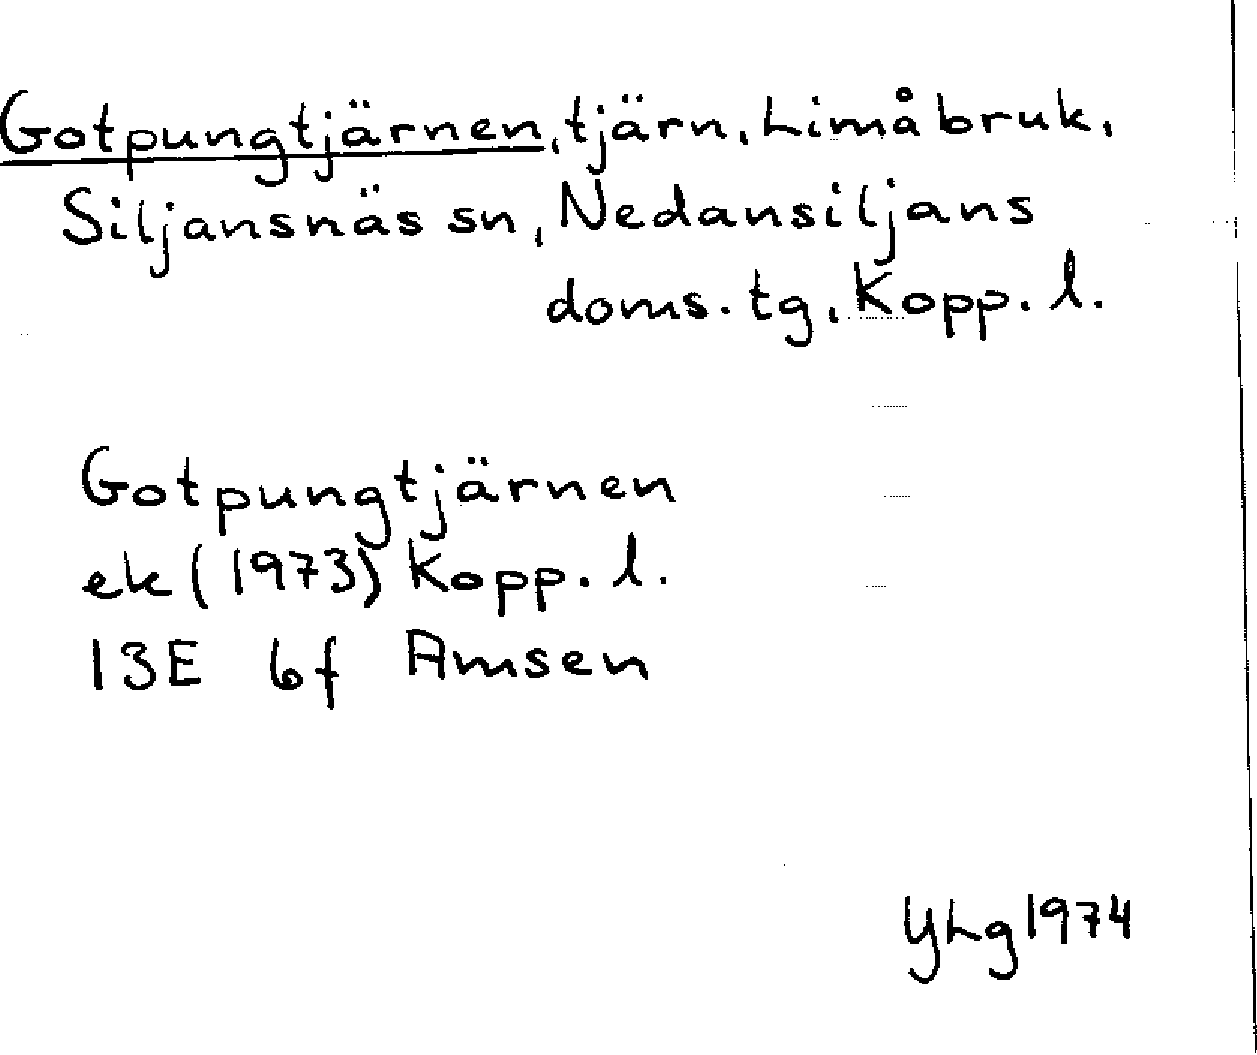 Gotpungtjärnen, tjärn, Limå bruk,
Siljansnäs sn, Nedansiljans
doms. tg, Kopp. l.
Gotpungtjärnen
ek (1973) Kopp. l.
13E 6f Amsen
YLg 1974